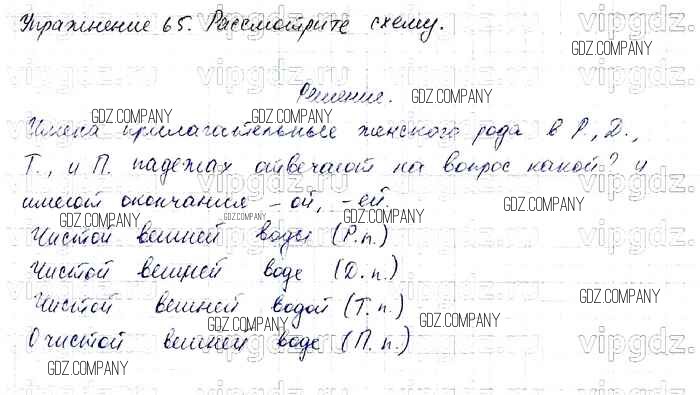 Упражнение 65. Рассмотрите схему.
Решение.
Имена прилагательные женского рода в Р., Д.,
Т., и П. падежах отвечают на вопрос какой? и
имеют окончания -ой, -ей.
Чистой вешней воды (Р.п.)
Чистой вешней воде (Д.п.)
Чистой вешней водой (Т.п.)
О чистой вешней воде (П.п.)
GDZ.COMPANY
vipgdz.ru